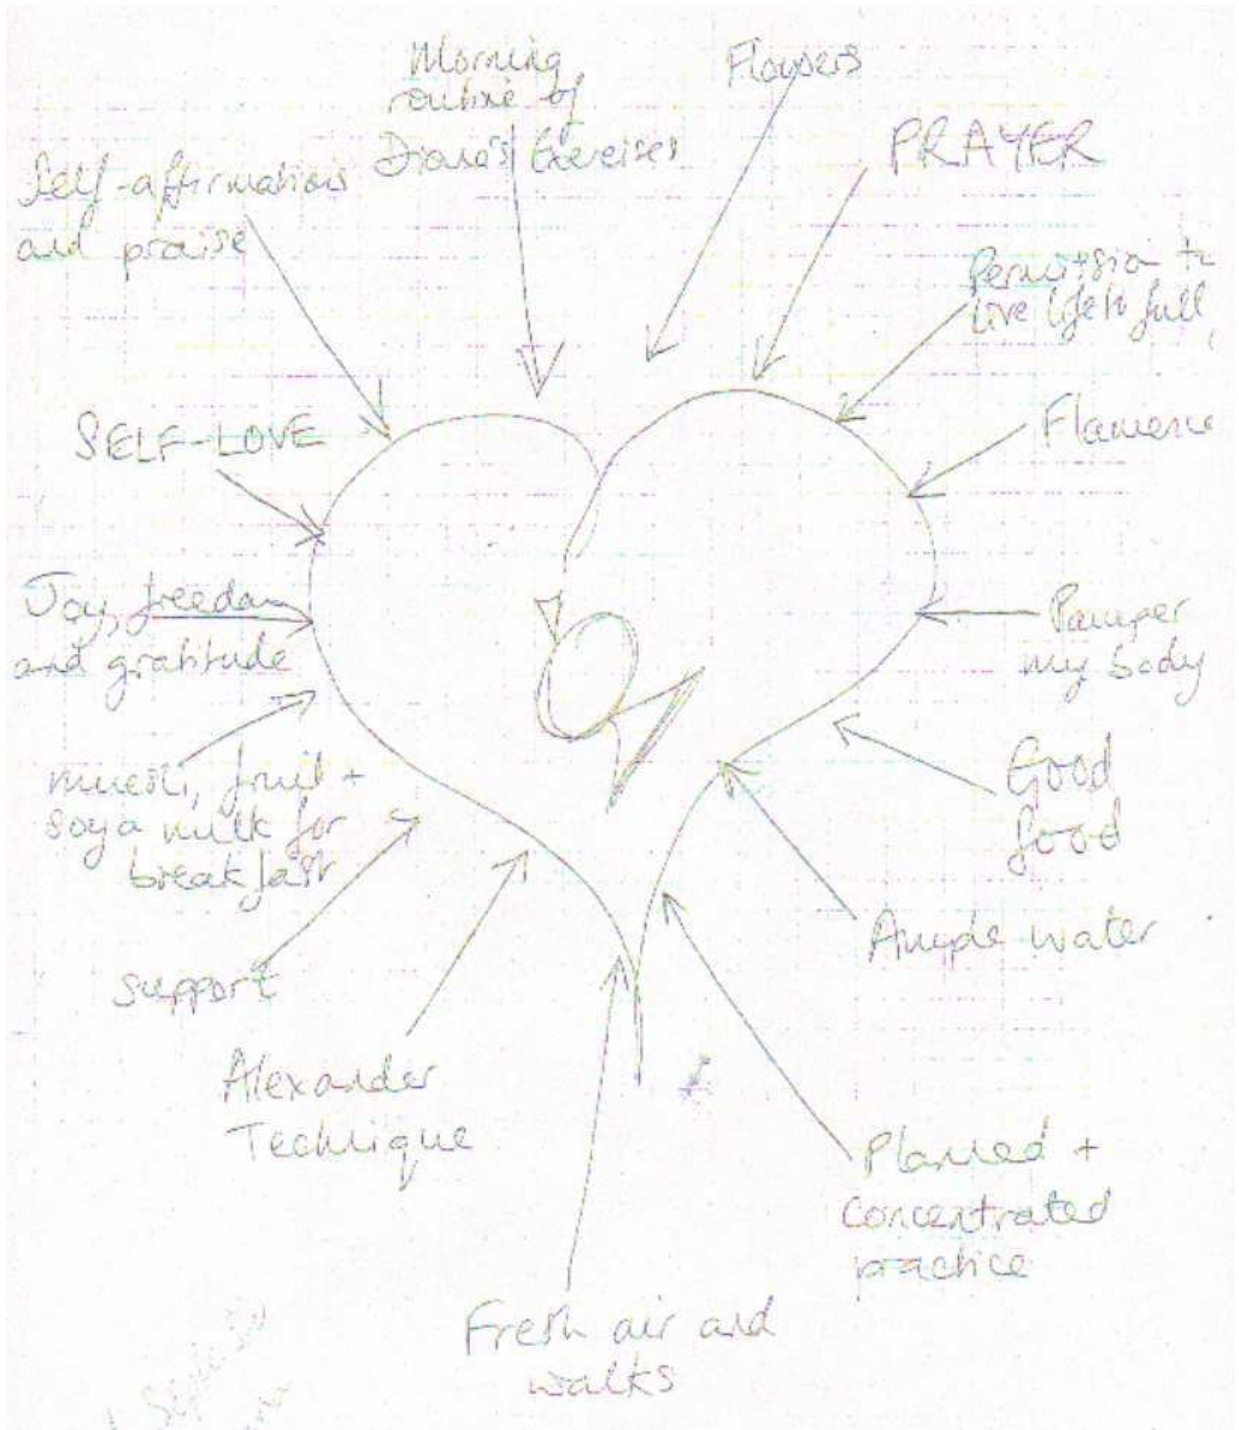 Morning
routine of
Diane's Exercises
Flowers
PRAYER
Self-affirmations
and praise
Permission to
live life to full
SELF-LOVE
Flamenc
Joy, freedom
and gratitude
Pamper
my body
muesli, fruit +
soya milk for
breakfast
Good
food
Ample water
support
Alexander
Technique
Planned +
concentrated
practice
Fresh air and
walks